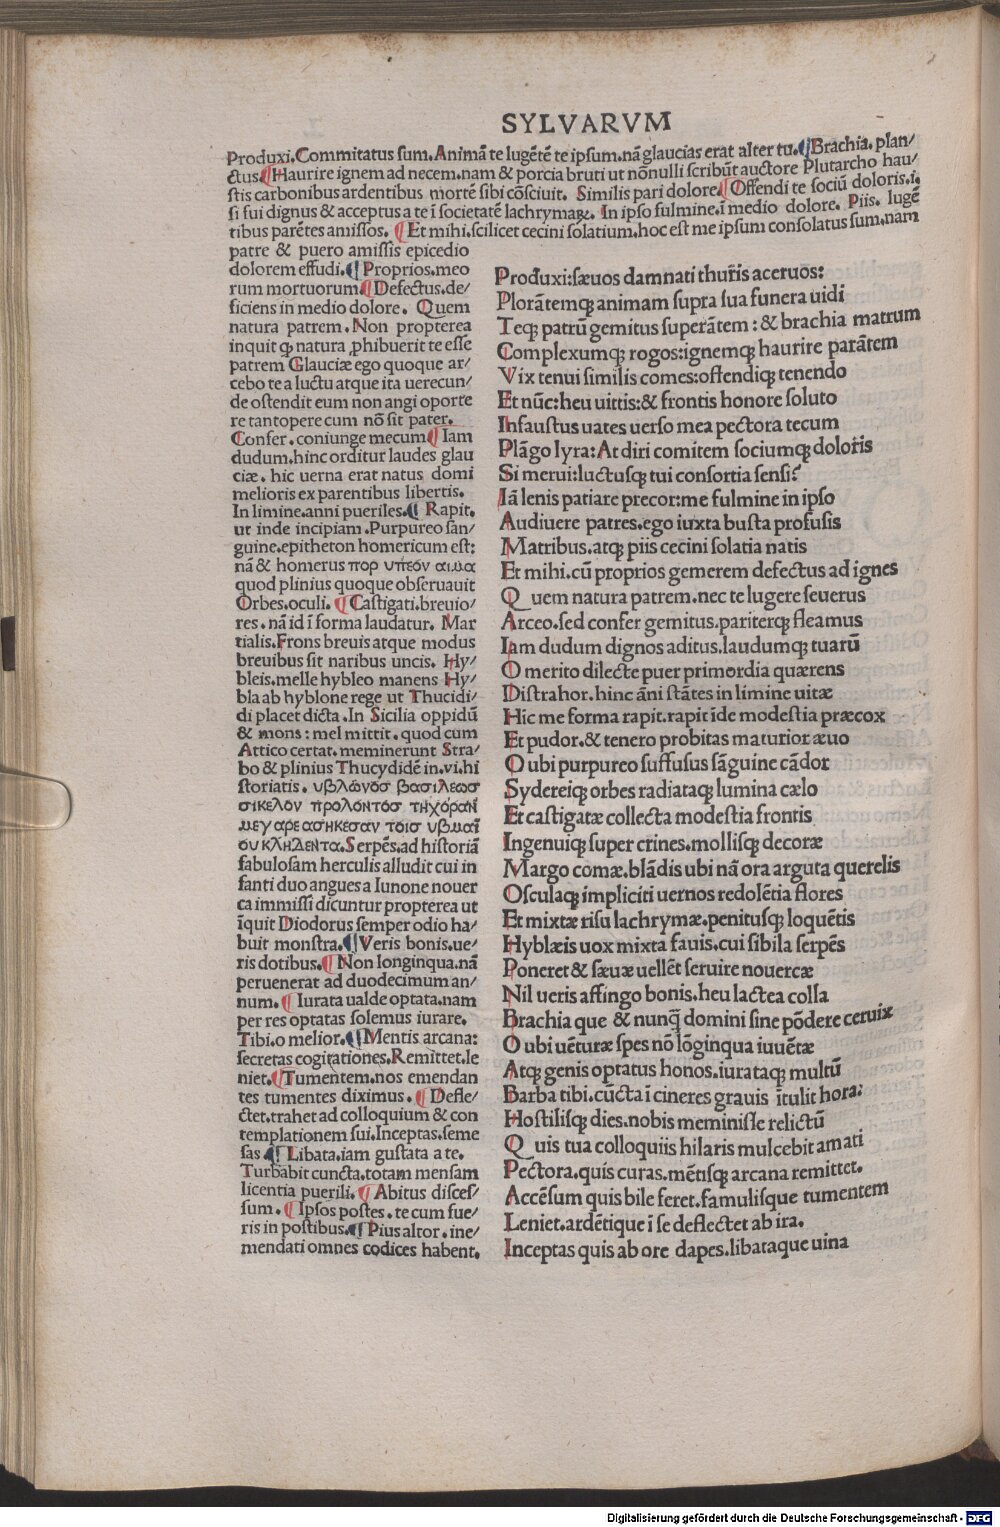 SYLVARVM
Produxi.Commitatus sum.Animā te lugētē te ipsum.nā glaucias erat alter tu.¶Brachia.plan/
ctus.¶Haurire ignem ad necem.nam & porcia bruti ut nōnulli scribūt auctore Plutarcho hau/
stis carbonibus ardentibus mortē sibi cōsciuit. Similis pari dolore.¶Offendi te sociū doloris.i.
si fui dignus & acceptus a te ī societatē lachrymaꝝ. In ipso fulmine.ī medio dolore. Piis. lugē
tibus parētes amissos. ¶Et mihi.scilicet cecini solatium.hoc est me ipsum consolatus sum.nam
patre & puero amissis epicedio
dolorem effudi.¶Proprios.meo
rum mortuorum¶Defectus.de/
ficiens in medio dolore. Quem
natura patrem.Non propterea
inquit ꝙ natura ꝓhibuerit te esse
patrem Glauciæ ego quoque ar/
cebo te a luctu atque ita uerecun/
de ostendit eum non angi oporte
re tantopere cum nō sit pater.
Confer.coniunge mecum¶Iam
dudum.hinc orditur laudes glau
ciæ. hic uerna erat natus domi
melioris ex parentibus libertis.
In limine.anni pueriles.¶Rapit.
ut inde incipiam.Purpureo san/
guine.epitheton homericum est:
nā & homerus πορ υπεον αιμα
quod plinius quoque obseruauit
Orbes.oculi. ¶Castigati.breuio/
res.nā id ī forma laudatur. Mar
tialis.Frons breuis atque modus
breuibus sit naribus uncis. Hy/
bleis.melle hybleo manens Hy/
bla ab hyblone rege ut Thucidi/
di placet dicta.In Sicilia oppidū
& mons: mel mittit.quod cum
Attico certat.meminerunt Stra/
bo & plinius Thucydidē in.vi.hi
storiatis. υβλωνοσ βασιλεωσ
σικελον προλοντοσ τηχοραν
μεγαρεασηκεσαν τοισ υβμαι
ουκληδεντα.Serpēs.ad historiā
fabulosam herculis alludit cui in
fanti duo angues a Iunone nouer
ca immissi dicuntur propterea ut
īquit Diodorus semper odio ha/
buit monstra.¶Veris bonis.ue/
ris dotibus.¶Non longinqua.nā
peruenerat ad duodecimum an/
num.¶Iurata ualde optata.nam
per res optatas solemus iurare.
Tibi.o melior.¶Mentis arcana:
secretas cogitationes.Remittet.le
niet.¶Tumentem.nos emendan
tes tumentes diximus.¶Defle/
ctet.trahet ad colloquium & con
templationem sui.Inceptas.seme
sas ¶Libata.iam gustata a te.
Turbabit cuncta.totam mensam
licentia puerili.¶Abitus disces/
sum.¶Ipsos postes.te cum fue/
ris in postibus.¶Pius altor.ine/
mendati omnes codices habent.
Produxi:sæuos damnati thuris aceruos:
Plorātemqȝ animam supra sua funera uidi
Teqȝ patrū gemitus superātem:& brachia matrum
Complexumqȝ rogos:ignemqȝ haurire parātem
Vix tenui similis comes:offendiqȝ tenendo
Et nūc:heu uittis:& frontis honore soluto
Infaustus uates uerso mea pectora tecum
Plāgo lyra:At diri comitem sociumqȝ doloris
Si merui:luctusqȝ tui consortia sensi?
Iā lenis patiare precor:me fulmine in ipso
Audiuere patres.ego iuxta busta profusis
Matribus.atqȝ piis cecini solatia natis
Et mihi.cū proprios gemerem defectus ad ignes
Quem natura patrem.nec te lugere seuerus
Arceo.sed confer gemitus.pariterqȝ fleamus
Iam dudum dignos aditus.laudumqȝ tuarū
O merito dilecte puer primordia quærens
Distrahor.hinc āni stātes in limine uitæ
Hic me forma rapit.rapit īde modestia præcox
Et pudor.& tenero probitas maturior æuo
O ubi purpureo suffusus sāguine cādor
Sydereiqȝ orbes radiataqȝ lumina cælo
Et castigatæ collecta modestia frontis
Ingenuiqȝ super crines.mollisqȝ decoræ
Margo comæ.blādis ubi nā ora arguta querelis
Osculaqȝ impliciti uernos redolētia flores
Et mixtæ risu lachrymæ.penitusqȝ loquētis
Hyblæis uox mixta fauis.cui sibila serpēs
Poneret & sæuæ uellēt seruire nouercæ
Nil ueris affingo bonis.heu lactea colla
Brachia que & nunq̄ domini sine pōdere ceruix
O ubi uēturæ spes nō lōginqua iuuētæ
Atqȝ genis optatus honos.iurataqȝ multū
Barba tibi.cūcta ī cineres grauis ītulit hora:
Hostilisqȝ dies.nobis meminisse relictū
Quis tua colloquiis hilaris mulcebit amati
Pectora.quis curas.mētisqȝ arcana remittet.
Accēsum quis bile feret.famulisque tumentem
Leniet.ardētique ī se deflectet ab ira.
Inceptas quis ab ore dapes.libataque uina
Digitalisierung gefördert durch die Deutsche Forschungsgemeinschaft - DFG